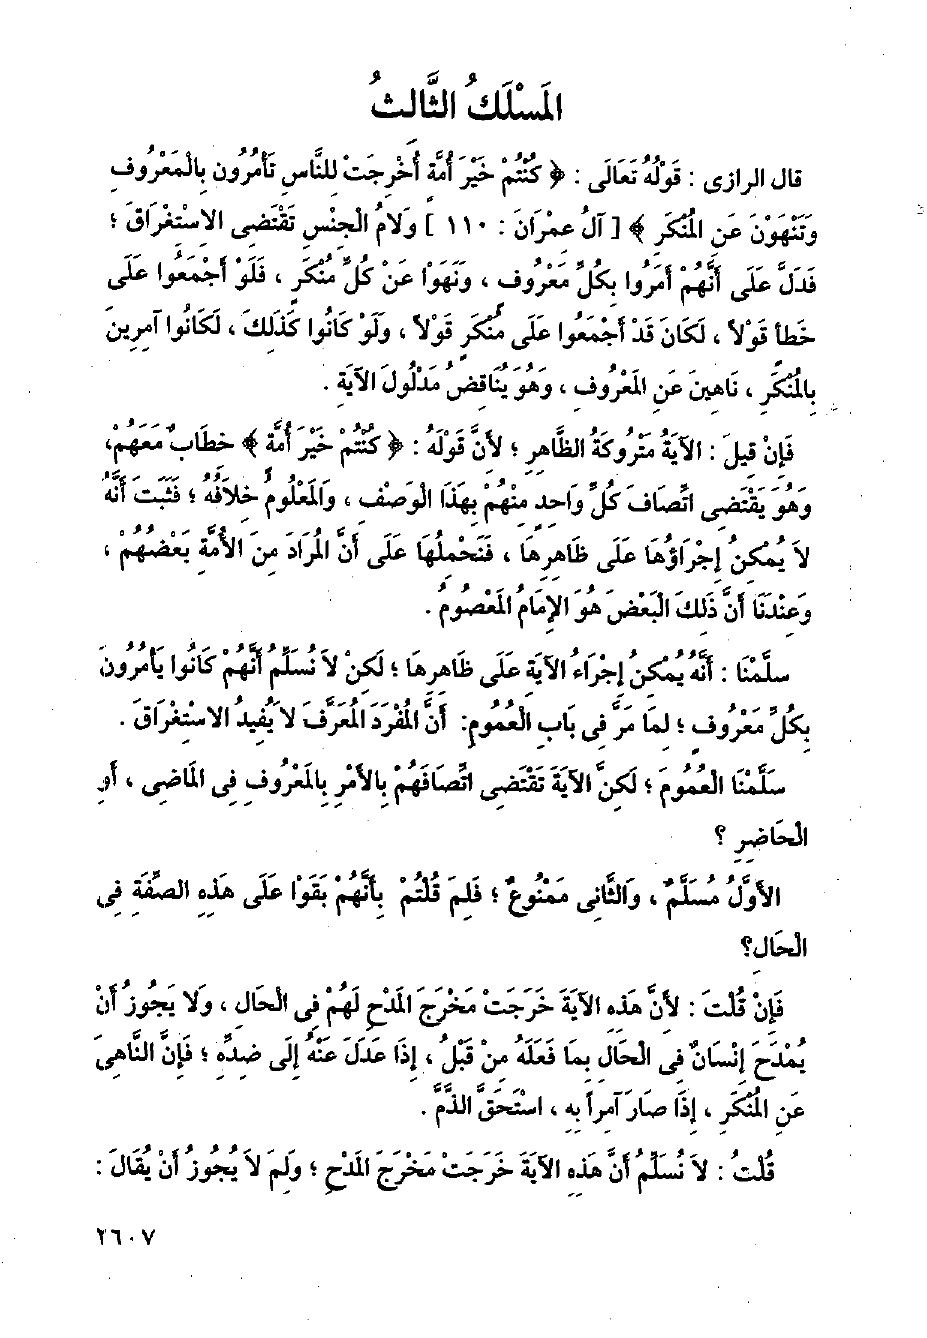 المَسْلَكُ الثَّالثُ
قال الرازى : قَوْلُهُ تَعَالَى : ﴿ كُنْتُمْ خَيْرَ أُمَّة أُخْرِجَتْ للنَّاسِ تَأْمُرُون بِالْمَعْرُوفِ
وَتَنْهَوْنَ عَنِ المُنْكَرِ ﴾ [ آلُ عمْرَانَ : ١١٠ ] وَلَامُ الْجنْسِ تَقْتَضى الاسْتغْرَاقَ ؛
فَدَلَّ عَلَى أَنَّهُمْ أَمَرُوا بِكُلِّ مَعْرُوف ، وَنَهَوْا عَنْ كُلِّ مُنْكَرٍ ، فَلَوْ أَجْمَعُوا عَلَى
خَطأ قَوْلاً ، لَكَانَ قَدْ أَجْمَعُوا عَلَى مُنْكَرٍ قَوْلاً ، وَلَوْ كَانُوا كَذَلكَ ، لَكَانُوا آمِرِينَ
بِالمُنْكَرِ ، نَاهينَ عَنِ المَعْرُوف ، وَهُوَ يُنَاقضُ مَدْلُولَ الآيَة .
فَإِنْ قيلَ : الآيَةُ مَتْرُوكَةُ الظَّاهِرِ ؛ لأَنَّ قَوْلَهُ : ﴿ كُنْتُمْ خَيْرَ أُمَّة ﴾ خطَابٌ مَعَهُمْ،
وَهُوَ يَقْتَضى اتِّصَافَ كُلِّ وَاحد منْهُمْ بِهَذَا الْوَصْف ، وَالمَعْلُومُ خلَافُهُ ؛ فَثَبَتَ أَنَّهُ
لاَ يُمْكنُ إِجْرَاؤُهَا عَلَى ظَاهرِهَا ، فَنَحْملُهَا عَلَى أَنَّ المُرَادَ منَ الأُمَّة بَعْضُهُمْ ،
وَعنْدَنَا أَنَّ ذَلكَ الْبَعْضَ هُوَ الإِمَامُ المَعْصُومُ .
سلَّمْنَا : أَنَّهُ يُمْكنُ إِجْرَاءُ الآيَة عَلَى ظَاهرِهَا ؛ لَكنْ لاَ نُسَلِّمُ أَنَّهُمْ كَانُوا يَأْمُرُونَ
بِكُلِّ مَعْرُوف ؛ لمَا مَرَّ فى بَابِ الْعُمُومِ: أَنَّ المُفْرَدَ المُعَرَّفَ لاَ يُفيدُ الاسْتغْرَاقَ .
سَلَّمْنَا الْعُمُومَ ؛ لَكنَّ الآيَةَ تَقْتَضى اتِّصَافَهُمْ بِالأَمْرِ بِالمَعْرُوف فى المَاضِى ، أَوِ
الْحَاضِرِ ؟
الأَوَّلُ مُسَلَّمٌ ، وَالثَّانى مَمْنُوعٌ ؛ فَلمَ قُلْتُمْ بِأَنَّهُمْ بَقَوْا عَلَى هَذه الصِّفَة فى
الْحَال؟
فَإِنْ قُلْتَ : لأَنَّ هَذه الآيَةَ خَرَجَتْ مَخْرَجَ المَدْحِ لَهُمْ فى الْحَال ، وَلَا يَجُوزُ أَنْ
يُمْدَحَ إِنْسَانٌ فى الْحَال بِمَا فَعَلَهُ منْ قَبْلُ ، إِذَا عَدَلَ عَنْهُ إِلَى ضدِّه ؛ فَإِنَّ النَّاهىَ
عَنِ المُنْكَرِ ، إِذَا صَارَ آمراً به ، اسْتَحَقَّ الذَّمَّ .
قُلْتُ : لاَ نُسَلِّمُ أَنَّ هَذه الآيَةَ خَرَجَتْ مَخْرَجَ المَدْحِ ؛ وَلمَ لاَ يَجُوزُ أَنْ يُقَالَ :
٢٦٠٧